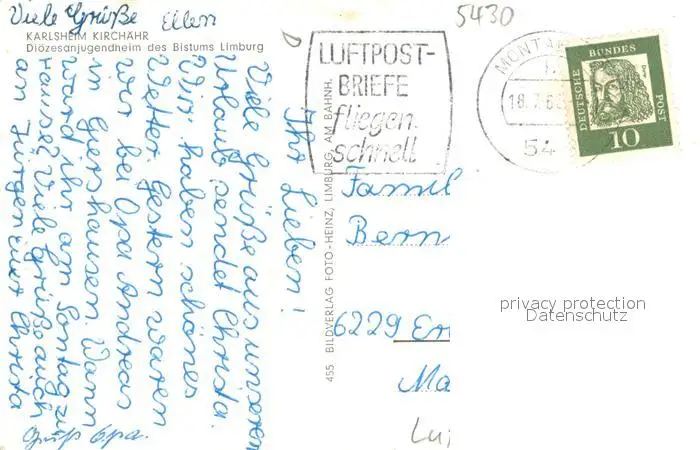 Viele Grüße Ellen
KARLSHEIM KIRCHÄHR
Diözesanjugendheim des Bistums Limburg
Ihr Lieben!
Viele Grüße aus unserem
Urlaub sendet Christa.
Wir haben schönes
Wetter. Gestern waren
wir bei Opa Andreas
in Gershausen. Wann
ward ihr am Sontag zu
Hause? Viele Grüße auch
an Jürgen eure Christa
Gruß Opa.
455 BILDVERLAG FOTO-HEINZ, LIMBURG, AM BAHNH.
5430
LUFTPOST-
BRIEFE
fliegen
schnell
MONTA
18.7.6
54
DEUTSCHE BUNDES POST
10
Famil
Bern
6229 Er
Ma
privacy protection
Datenschutz